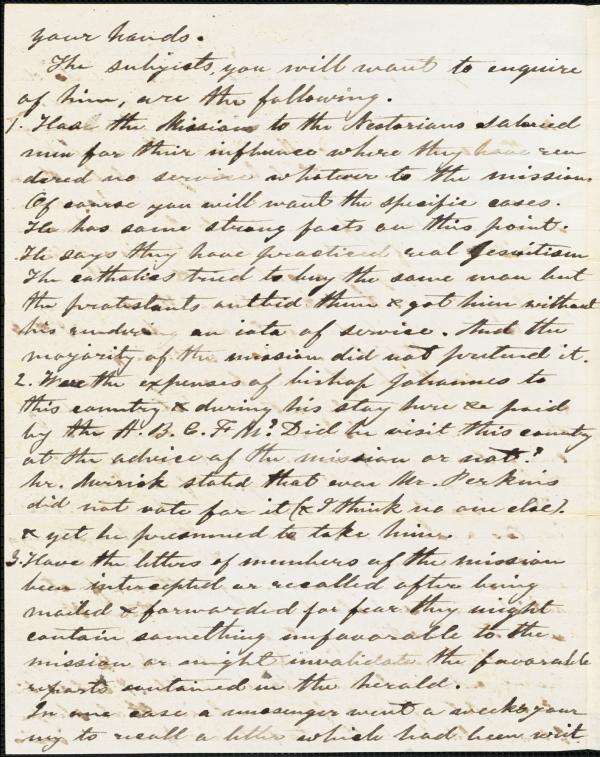 your hands.
The subjects, you will want to enquire
of him, are the following.
1. Has the Mission to the Nestorians salaried
men for their influence where they have ren
dered no service whatever to the missions
Of course you will want the specific cases.
He has some strong facts on this point.
He says they have practiced real Jesuitism
The catholics tried to buy the same man but
the protestants outbid them & got him without
his rendering an iota of service. And the
majority of the mission did not pretend it.
2. Were the expenses of bishop Johannes to
this country & during his stay here &c paid
by the A. B. C. F. M? Did he visit this county
at the advice of the mission or not?
Mr. Merrick stated that even Mr. Perkins
did not vote for it (& I think no one else).
& yet he presumed to take him.
3. Have the letters of members of the mission
been intercepted or recalled after being
mailed & forwarded for fear they might
contain something unfavorable to the
mission or might invalidate the favorable
reports contained in the herald.
In one case a messenger went a weeks jour
ny to recall a letter which had been writ